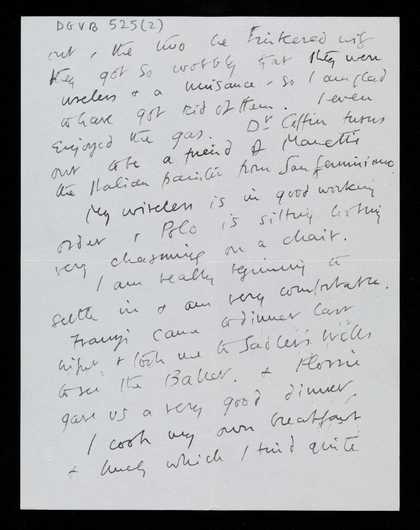 DGVB 525(2)
out, the two he tinkered with
they got so wobbly that they were
useless & a nuisance - so I am glad
to have got rid of them. I even
enjoyed the gas. Dr Coffin turns
out to be a friend of
the Italian painter from San Geminiano
My wireless is in good working
order, Polo is sitting looking
very charming on a chair.
I am really beginning to
settle in & am very comfortable.
came to dinner last
night & took me to Sadlers Wells
to see the Ballet. & Florrie
gave us a very good dinner,
I cook my own breakfast
& lunch which I find quite